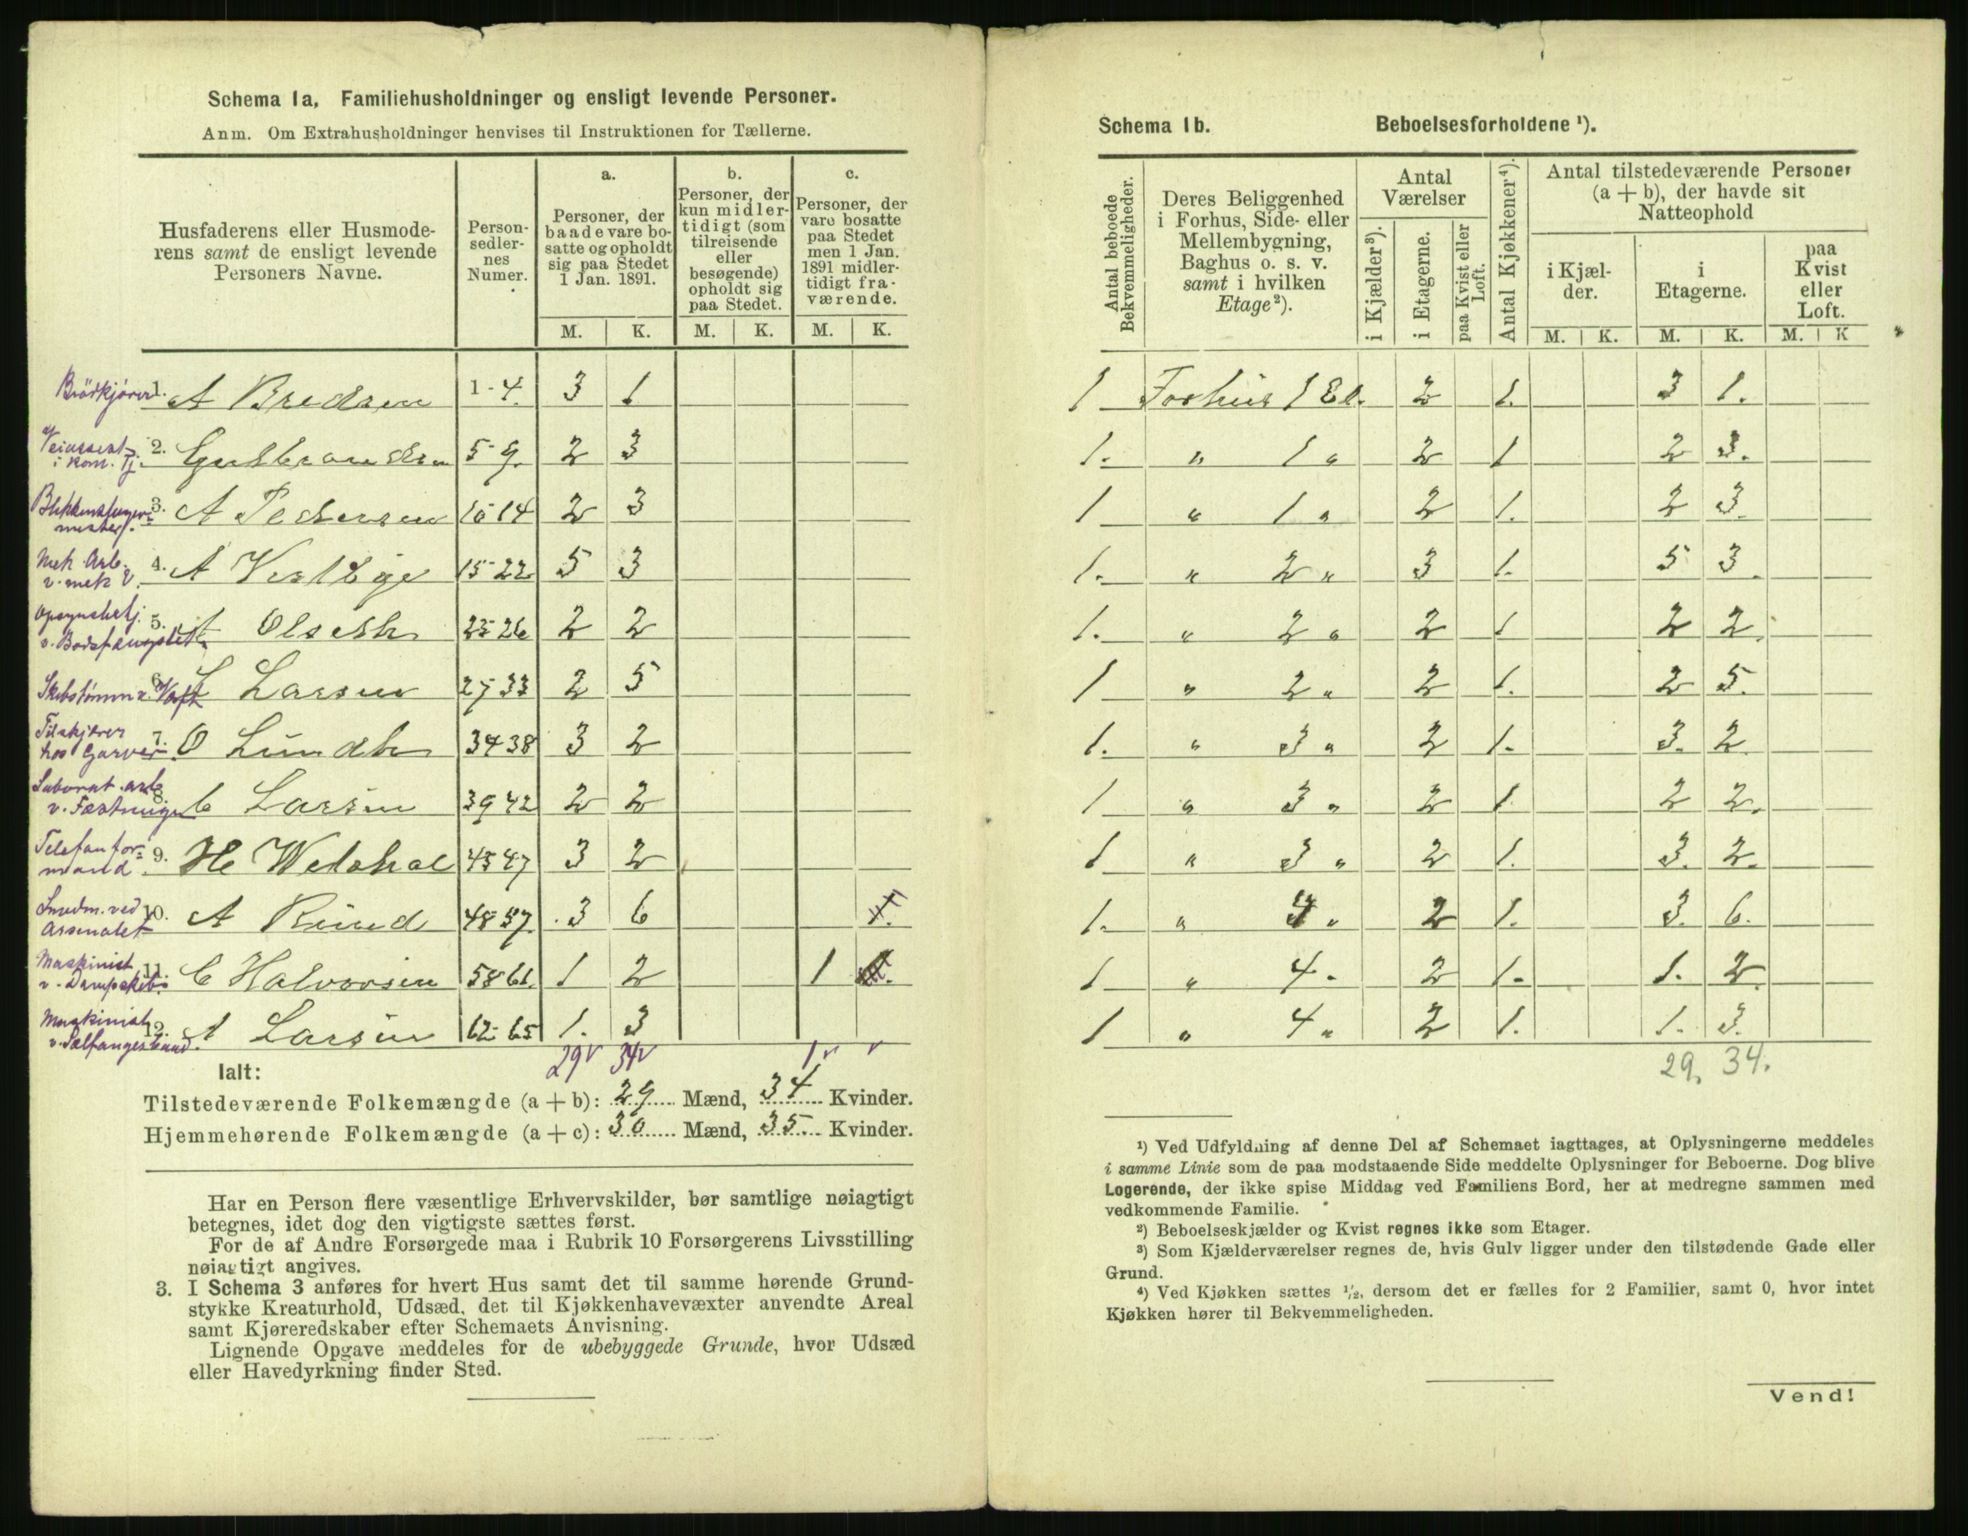 Schema 1a, Familiehusholdninger og ensligt levende Personer.
Anm. Om Extrahusholdninger henvises til Instruktionen for Tællerne.
Husfaderens eller Husmoderens samt de ensligt levende Personers Navne.
Personsedlernes Numer.
a. Personer, der baade vare bosatte og opholdt sig paa Stedet 1 Jan. 1891.
b. Personer, der kun midlertidigt (som tilreisende eller besøgende) opholdt sig paa Stedet.
c. Personer, der vare bosatte paa Stedet men 1 Jan. 1891 midlertidigt fraværende.
M. K. M. K. M. K.
Brödkjörer 1. A Bredsen 1-4. 3 1
2. Gulbrandsen 5-9. 2 3
Blikkenslagermester. 3. A Pedersen 10 14 2 3
Mek Arb. v. mek V. 4. A 15-22 5 3
5. A Olsen 23-26 2 2
6. L Larsen 27 33 2 5
hos Garver. 7. O Lundh 34 38 3 2
8. C Larsen 39 42 2 2
Telefonformand 9. H 43 47 3 2
Smedm. ved Arsenalet 10. A Rund 48 57. 3 6 1.
Maskinist v. Dampskib 11. C Halvorsen 58 61. 1 2 1
Maskinist 12. A Larsen 62-65 1. 3
29 v 34 v 1 v v
Ialt:
Tilstedeværende Folkemængde (a + b): 29 Mænd, 34 Kvinder.
Hjemmehørende Folkemængde (a + c): 30 Mænd, 35 Kvinder.
Har en Person flere væsentlige Erhvervskilder, bør samtlige nøiagtigt
betegnes, idet dog den vigtigste sættes først.
For de af Andre Forsørgede maa i Rubrik 10 Forsørgerens Livsstilling
nøiagtigt angives.
3. I Schema 3 anføres for hvert Hus samt det til samme hørende Grund-
stykke Kreaturhold, Udsæd, det til Kjøkkenhavevæxter anvendte Areal
samt Kjøreredskaber efter Schemaets Anvisning.
Lignende Opgave meddeles for de ubebyggede Grunde, hvor Udsæd
eller Havedyrkning finder Sted.
Schema 1b. Beboelsesforholdene ¹).
Antal beboede Bekvemmeligheder.
Deres Beliggenhed i Forhus, Side- eller Mellembygning, Baghus o. s. v. samt i hvilken Etage²).
Antal Værelser
i Kjælder³).
i Etagerne.
paa Kvist eller Loft.
Antal Kjøkkener⁴).
Antal tilstedeværende Personer (a + b), der havde sit Natteophold
i Kjælder.
i Etagerne.
paa Kvist eller Loft.
M. K. M. K. M. K
1 Forhus 1 Et. 2 1. 3 1.
1. " 1 " 2 1 2 3.
1 " 1 " 2 1. 2 3.
1. " 2 " 3 1. 5 3.
1. " 2 " 2 1 2 2.
1 " 2 " 2 1. 2 5.
1. " 3 " 2 1. 3. 2.
1 " 3 " 2 1. 2 2.
1 " 3 " 2 1. 3. 2.
1. " 4 " 2 1. 3. 6.
1 " 4 - 2 1. 1. 2.
1 " 4 " 2 1. 1. 3.
29. 34.
¹) Ved Udfyldning af denne Del af Schemaet iagttages, at Oplysningerne meddeles
i samme Linie som de paa modstaaende Side meddelte Oplysninger for Beboerne. Dog blive
Logerende, der ikke spise Middag ved Familiens Bord, her at medregne sammen med
vedkommende Familie.
²) Beboelseskjælder og Kvist regnes ikke som Etager.
³) Som Kjælderværelser regnes de, hvis Gulv ligger under den tilstødende Gade eller
Grund.
⁴) Ved Kjøkken sættes ¹/₂, dersom det er fælles for 2 Familier, samt 0, hvor intet
Kjøkken hører til Bekvemmeligheden.
Vend!